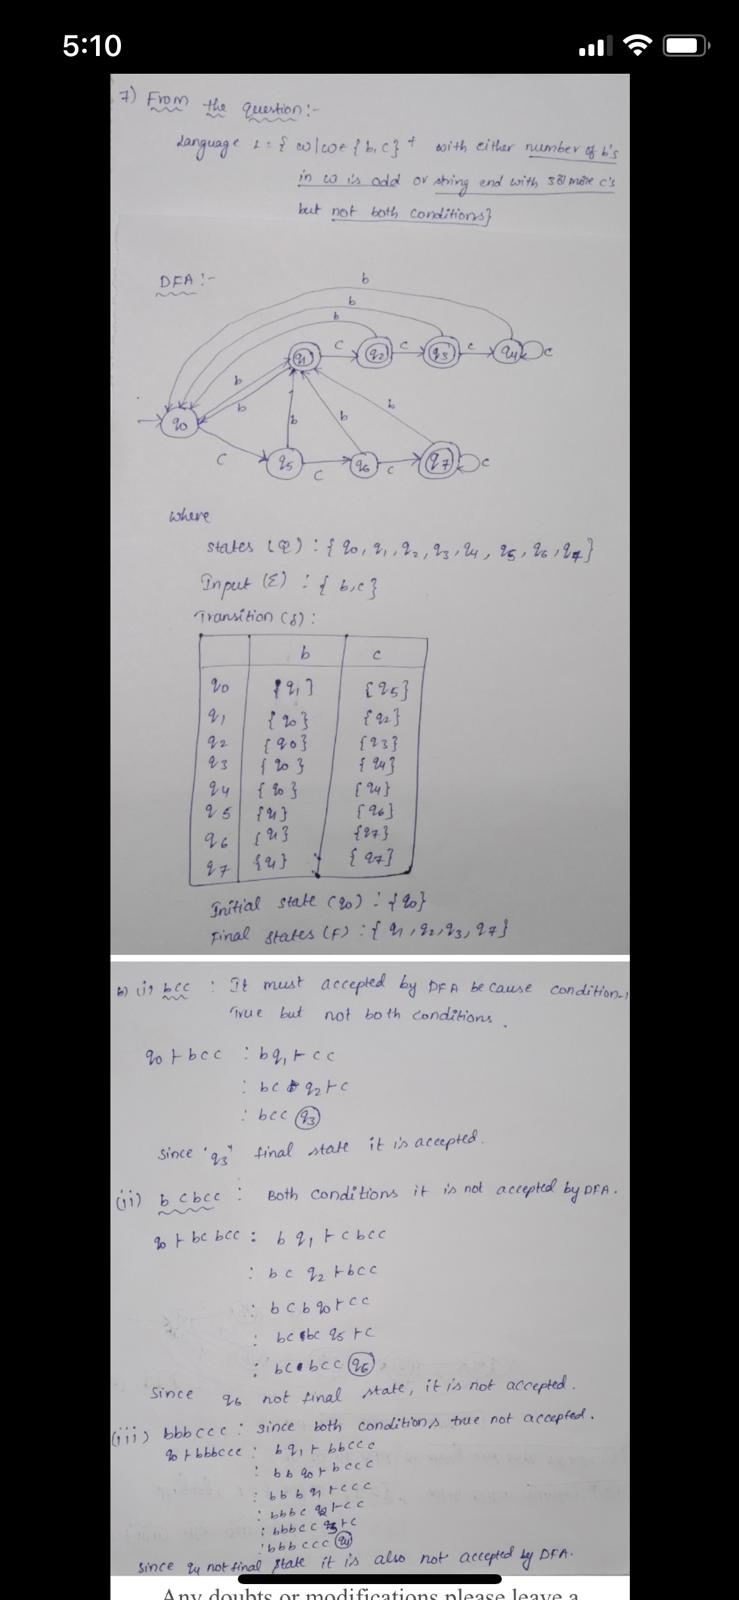 5:10
7) From the question:-
Language L = { w|w∈{b,c}⁺ with either number of b's
in w is odd or string end with 3 or more c's
but not both conditions}
DFA :-
b
b
b
q1 c q2 c q3 c q4 c
b
b
q0
b b b
c q5 c q6 c q7 c
where
States (Q) : { q0, q1, q2, q3, q4, q5, q6, q7}
Input (Σ) : { b,c}
Transition (δ) :
b c
q0 {q1} {q5}
q1 {q0} {q2}
q2 {q0} {q3}
q3 {q0} {q4}
q4 {q0} {q4}
q5 {q1} {q6}
q6 {q1} {q7}
q7 {q1} {q7}
Initial state (q0) : {q0}
Final states (F) : { q1, q2, q3, q7}
b) (i) bcc : It must accepted by DFA because condition-1
True but not both conditions.
q0 ⊢ bcc : bq1 ⊢ cc
: bc q2 ⊢ c
: bcc q3
Since "q3" final state it is accepted.
(ii) bcbcc : Both conditions it is not accepted by DFA.
q0 ⊢ bcbcc : b q1 ⊢ cbcc
: bc q2 ⊢ bcc
: bcb q0 ⊢ cc
: bcbc q5 ⊢ c
: bcbcc q6
Since q6 not final state, it is not accepted.
(iii) bbbccc : since both conditions true not accepted.
q0 ⊢ bbbccc : bq1 ⊢ bbccc
: bb q0 ⊢ bccc
: bbb q1 ⊢ ccc
: bbbc q2 ⊢ cc
: bbbcc q3 ⊢ c
: bbbccc q4
Since q4 not final state it is also not accepted by DFA.
Any doubts or modifications please leave a